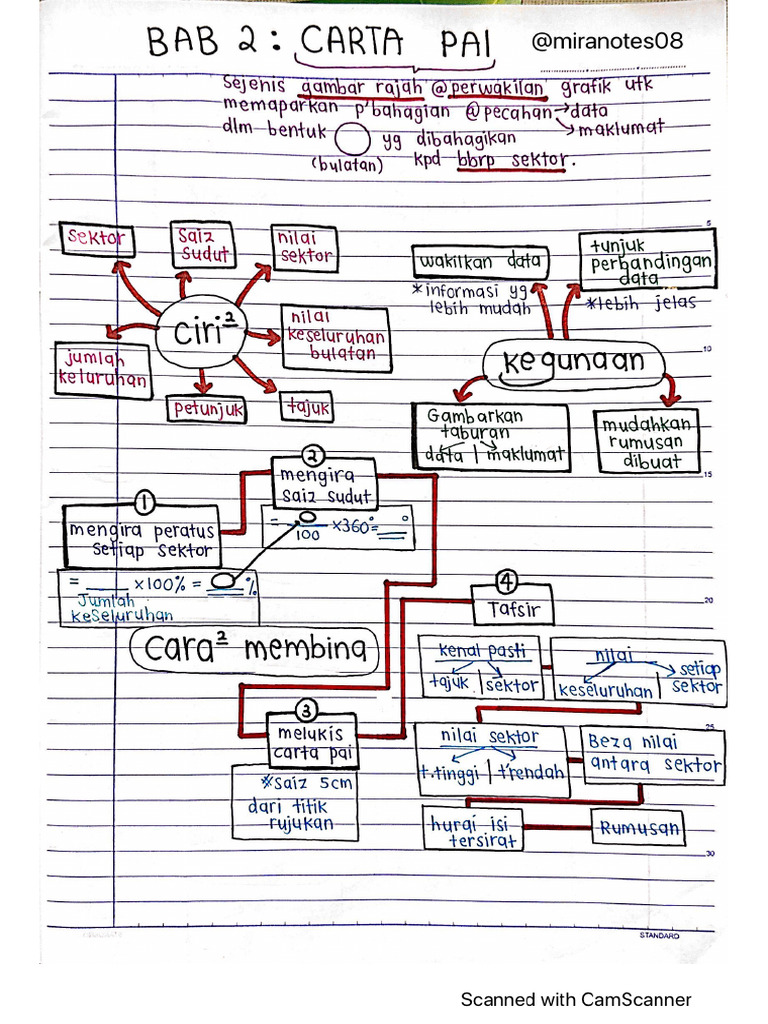 BAB 2 : CARTA PAI
@miranotes08
Sejenis gambar rajah @ perwakilan grafik utk
memaparkan p'bahagian @ pecahan → data
→ maklumat
dlm bentuk ◯ yg dibahagikan
(bulatan) kpd bbrp sektor.
sektor
saiz
sudut
nilai
sektor
ciri²
nilai
keseluruhan
bulatan
jumlah
keluruhan
petunjuk
tajuk
wakilkan data
*informasi yg
lebih mudah
tunjuk
perbandingan
data
*lebih jelas
kegunaan
Gambarkan
taburan
data | maklumat
mudahkan
rumusan
dibuat
1
mengira peratus
setiap sektor
= ___ ×100% = ◯ %
Jumlah
keseluruhan
2
mengira
saiz sudut
= ◯/100 ×360° = ___°
cara² membina
3
melukis
carta pai
*saiz 5cm
dari titik
rujukan
4
Tafsir
kenal pasti
tajuk | sektor
nilai
keseluruhan | setiap
sektor
nilai sektor
t.tinggi | t'rendah
Beza nilai
antara sektor
hurai isi
tersirat
Rumusan
5
10
15
20
25
30
STANDARD
Scanned with CamScanner